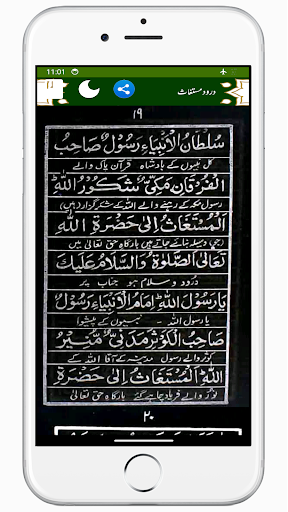 11:01
درود مستغاث
١٩
سُلْطَانُ الْاَنْبِيَاءِ رَسُوْلٌ صَاحِبُ
کل نبیوں کے بادشاہ قرآن پاک والے
الْفُرْقَانِ مَكِّيٌّ شَكُوْرُ اللّٰهِ
رسول مکہ کے رہنے والے اللہ کے شکر گزار (ہیں)
اَلْمُسْتَغَاثُ اِلٰى حَضْرَةِ اللّٰهِ
(جن) وسیلہ بنائے جاتے ہیں بارگاہ حق تعالیٰ میں
تَعَالٰى اَلصَّلٰوةُ وَالسَّلَامُ عَلَيْكَ
درود و سلام ہو جناب پر
يَا رَسُوْلَ اللّٰهِ اِمَامُ الْاَنْبِيَاءِ رَسُوْلٌ
یا رسول اللہ نبیوں کے پیشوا
صَاحِبُ الْكَوْثَرِ مَدَنِيٌّ مُّنِيْرُ
کوثر والے رسول مدینہ کے آقا اللہ کے
اللّٰهِ اَلْمُسْتَغَاثُ اِلٰى حَضْرَةِ
نور والے فریاد چاہے گئے بارگاہ حق تعالیٰ
٢٠